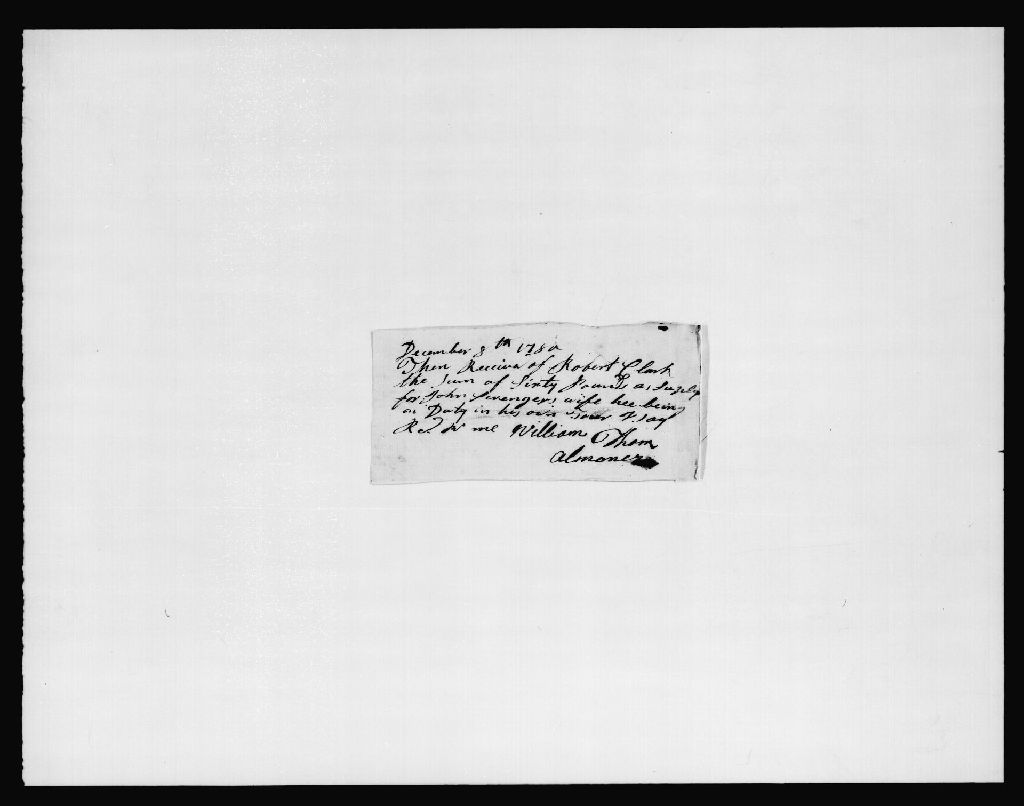 December 8th 1780
Then Receivd of Robert Clark
the Sum of Sixty Pounds as Suply
for John Screngers wife hee being
on Duty in his own Tour I say
Recd Pr me William Thom
almoner